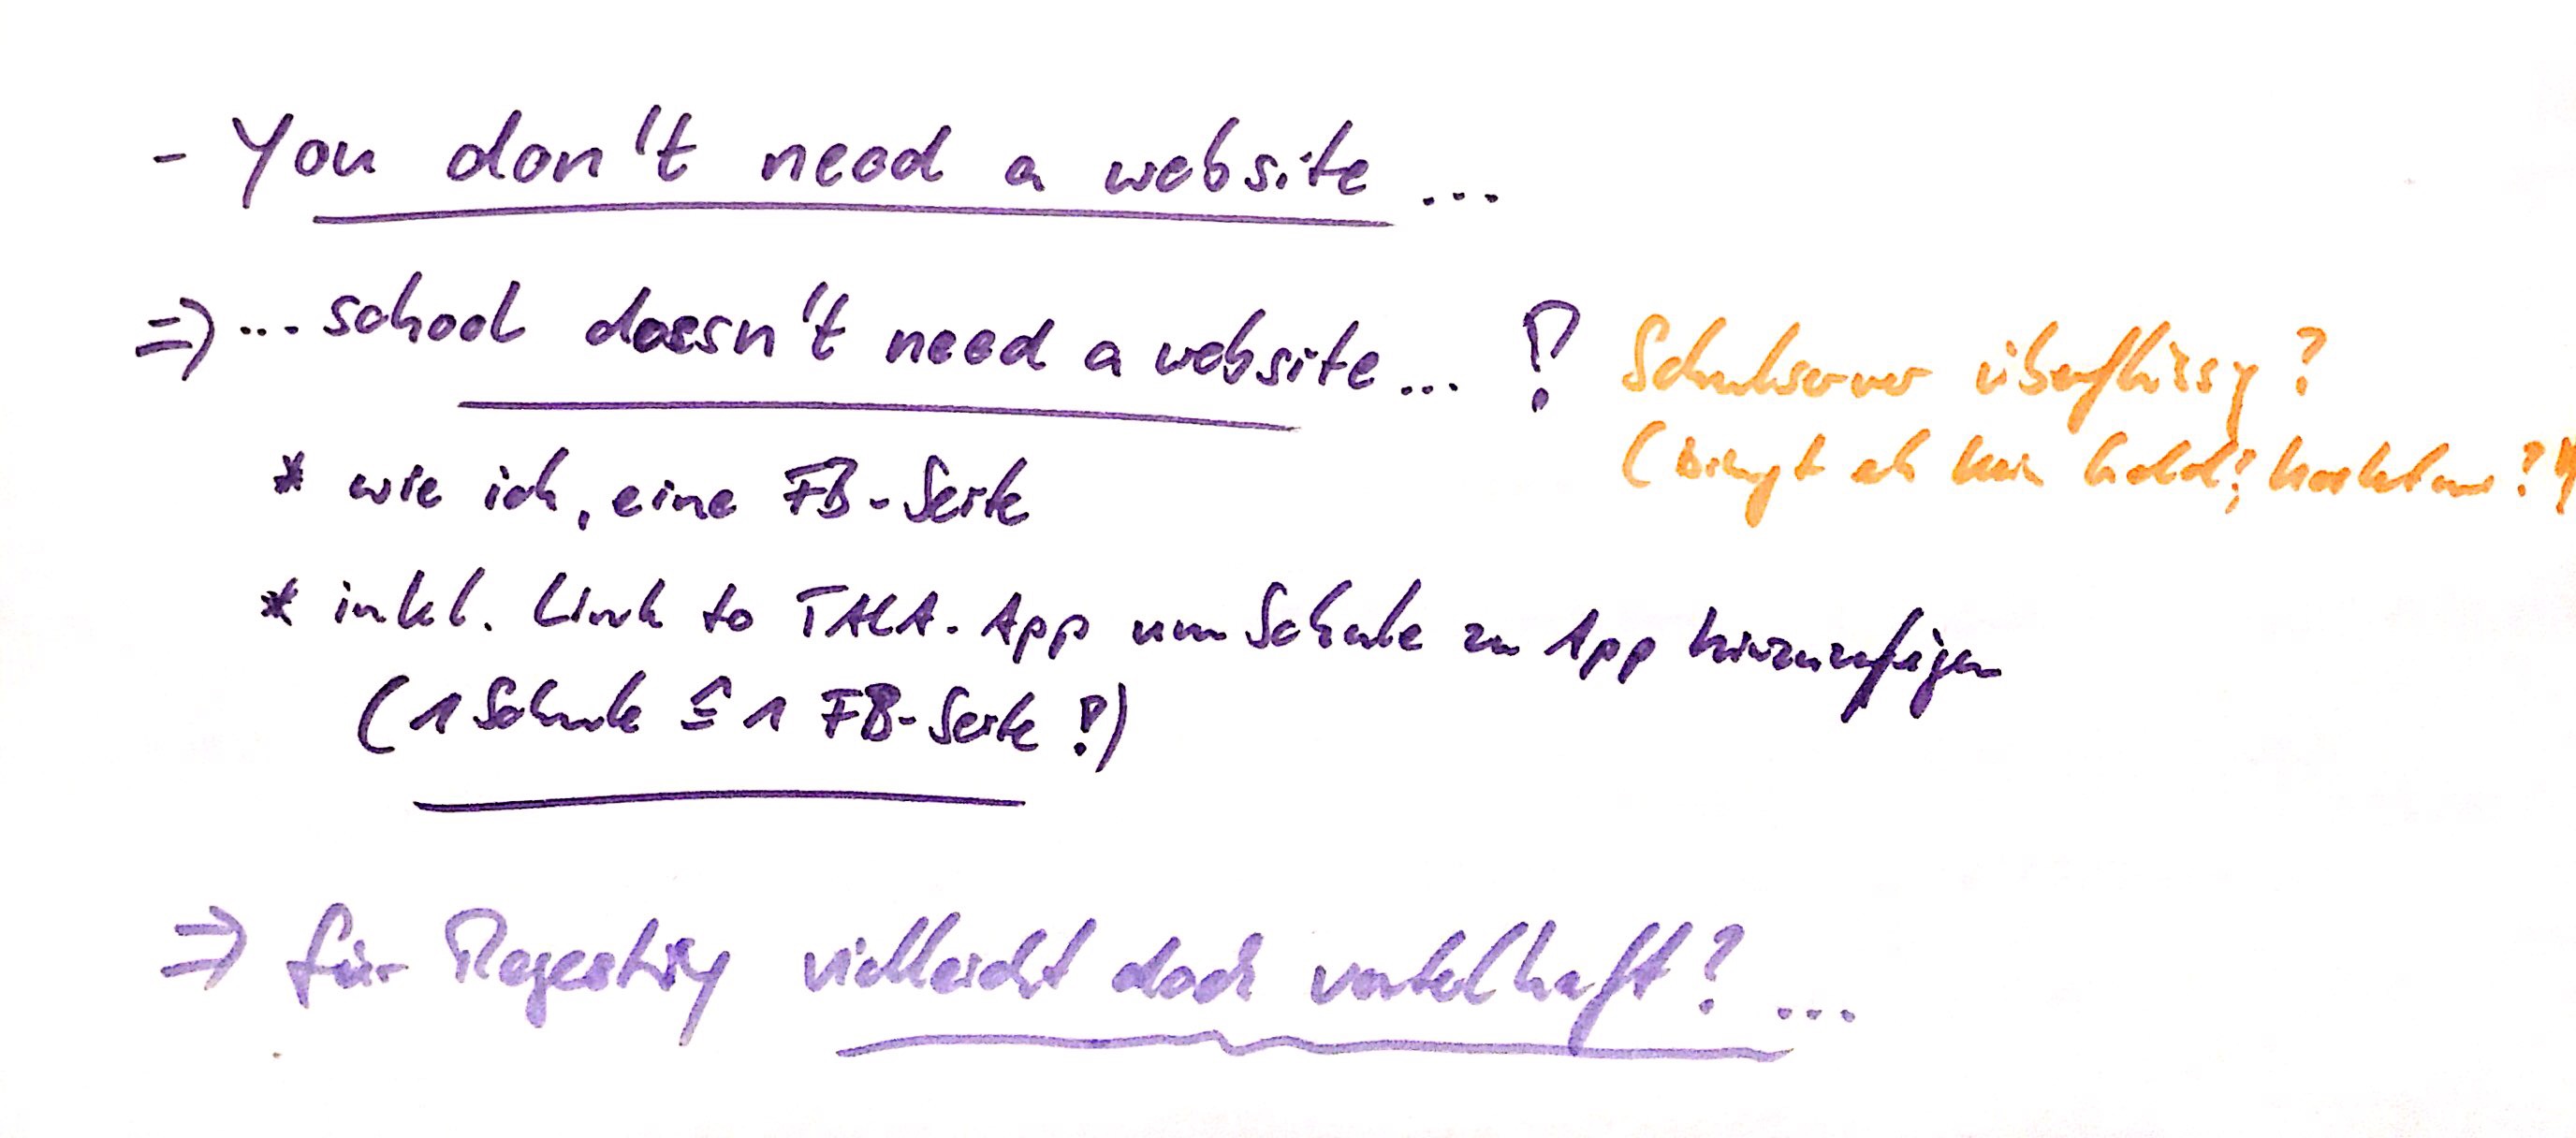 - You don't need a website ...
=> ... school doesn't need a website ... ?
Schulserver überflüssig?
(bringt eh kein Geld;
* wie ich, eine FB-Seite
* inkl. Link to App um Schule zu App hinzuzufügen
(1 Schule ≙ 1 FB-Seite?)
=> für vielleicht doch vorteilhaft? ...